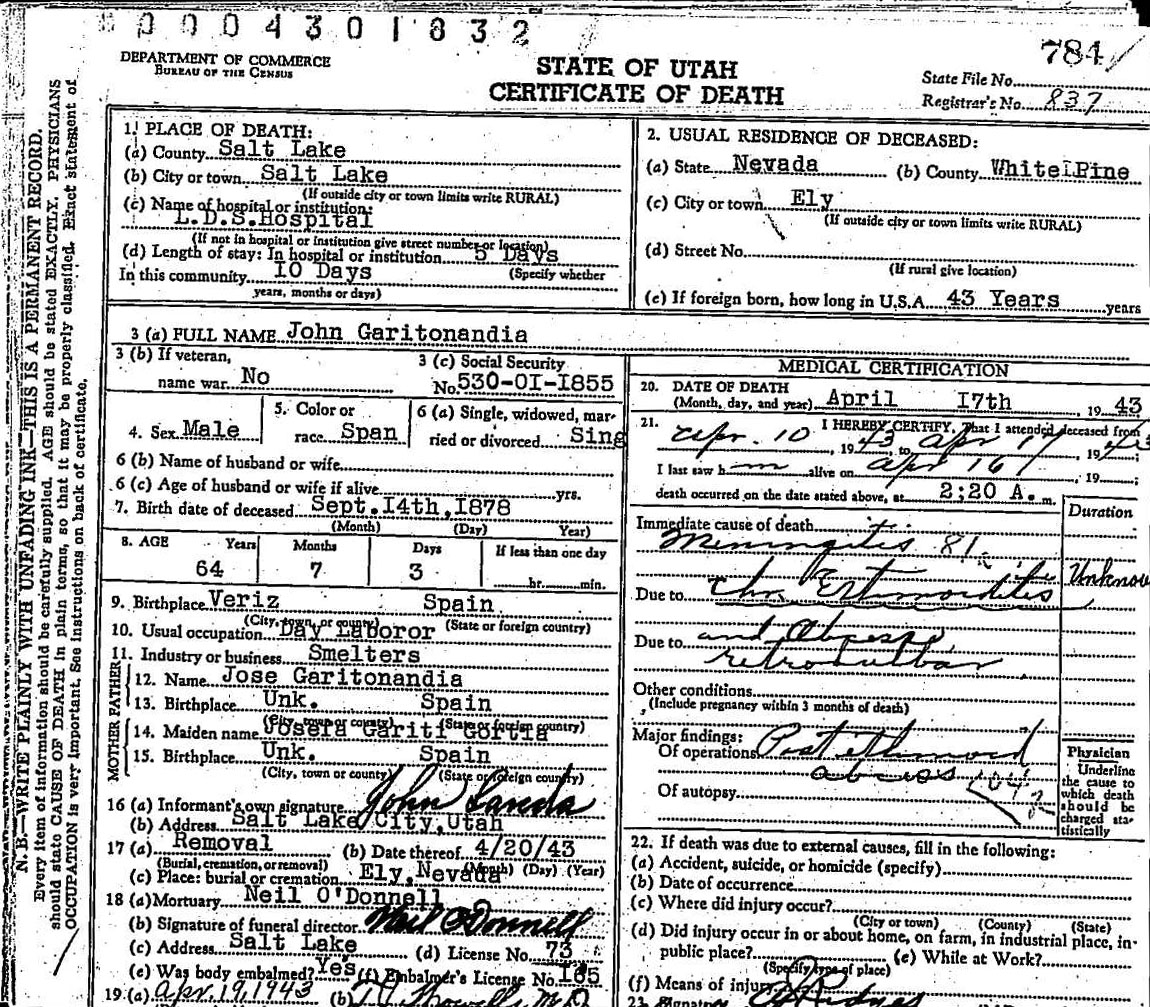 0004301832
784
DEPARTMENT OF COMMERCE
BUREAU OF THE CENSUS
STATE OF UTAH
CERTIFICATE OF DEATH
State File No.
Registrar's No. 837
N. B.—WRITE PLAINLY WITH UNFADING INK—THIS IS A PERMANENT RECORD.
Every item of information should be carefully supplied. AGE should be stated EXACTLY. PHYSICIANS
should state CAUSE OF DEATH in plain terms, so that it may be properly classified. Exact statement of
OCCUPATION is very important. See instructions on back of certificate.
1. PLACE OF DEATH:
(a) County Salt Lake
(b) City or town Salt Lake
(If outside city or town limits write RURAL)
(c) Name of hospital or institution:
L.D.S.Hospital
(If not in hospital or institution give street number or location)
(d) Length of stay: In hospital or institution 5 Days
In this community 10 Days (Specify whether
years, months or days)
2. USUAL RESIDENCE OF DECEASED:
(a) State Nevada (b) County White Pine
(c) City or town Ely
(If outside city or town limits write RURAL)
(d) Street No.
(If rural give location)
(e) If foreign born, how long in U.S.A. 43 Years years
3 (a) FULL NAME John Garitonandia
3 (b) If veteran, 3 (c) Social Security
name war No No. 530-01-1855
4. Sex Male 5. Color or race Span 6 (a) Single, widowed, mar-
ried or divorced Sing
6 (b) Name of husband or wife
6 (c) Age of husband or wife if alive yrs.
7. Birth date of deceased Sept.14th,1878
(Month) (Day) Year)
8. AGE Years Months Days If less than one day
64 7 3 hr. min.
9. Birthplace Veriz Spain
(City, town, or county) (State or foreign country)
10. Usual occupation Day Laboror
11. Industry or business Smelters
FATHER
12. Name Jose Garitonandia
13. Birthplace Unk. Spain
(City, town or county) (State or foreign country)
MOTHER
14. Maiden name Josefa Gariti Gortia
15. Birthplace Unk. Spain
(City, town or county) (State or foreign country)
16 (a) Informant's own signature John Landa
(b) Address Salt Lake City,Utah
17 (a) Removal (b) Date thereof 4/20/43
(Burial, cremation, or removal) (Month) (Day) (Year)
(c) Place: burial or cremation Ely,Nevada
18 (a) Mortuary Neil O'Donnell
(b) Signature of funeral director Neil O'Donnell
(c) Address Salt Lake (d) License No. 73
(e) Was body embalmed? Yes (f) Embalmer's License No. 165
19 (a) Apr. 19, 1943 (b) M.D.
MEDICAL CERTIFICATION
20. DATE OF DEATH
(Month, day, and year) April 17th, 19 43
21. I HEREBY CERTIFY, That I attended deceased from
Apr. 10, 19 43 to Apr 17, 19 43;
I last saw h im alive on Apr 16, 19 ;
death occurred on the date stated above, at 2:20 A. m.
Duration
Immediate cause of death
Meningitis 81
Unknow
Due to Chr. Ethmoiditis
Due to and Abscess,
retrobulbar
Other conditions
(Include pregnancy within 3 months of death)
Major findings:
Of operations Post ethmoid
abcess 104
Of autopsy
Physician
Underline
the cause to
which death
should be
charged sta-
tistically
22. If death was due to external causes, fill in the following:
(a) Accident, suicide, or homicide (specify)
(b) Date of occurrence
(c) Where did injury occur?
(City or town) (County) (State)
(d) Did injury occur in or about home, on farm, in industrial place, in
public place? (e) While at Work?
(Specify type of place)
(f) Means of injury
23. Signature